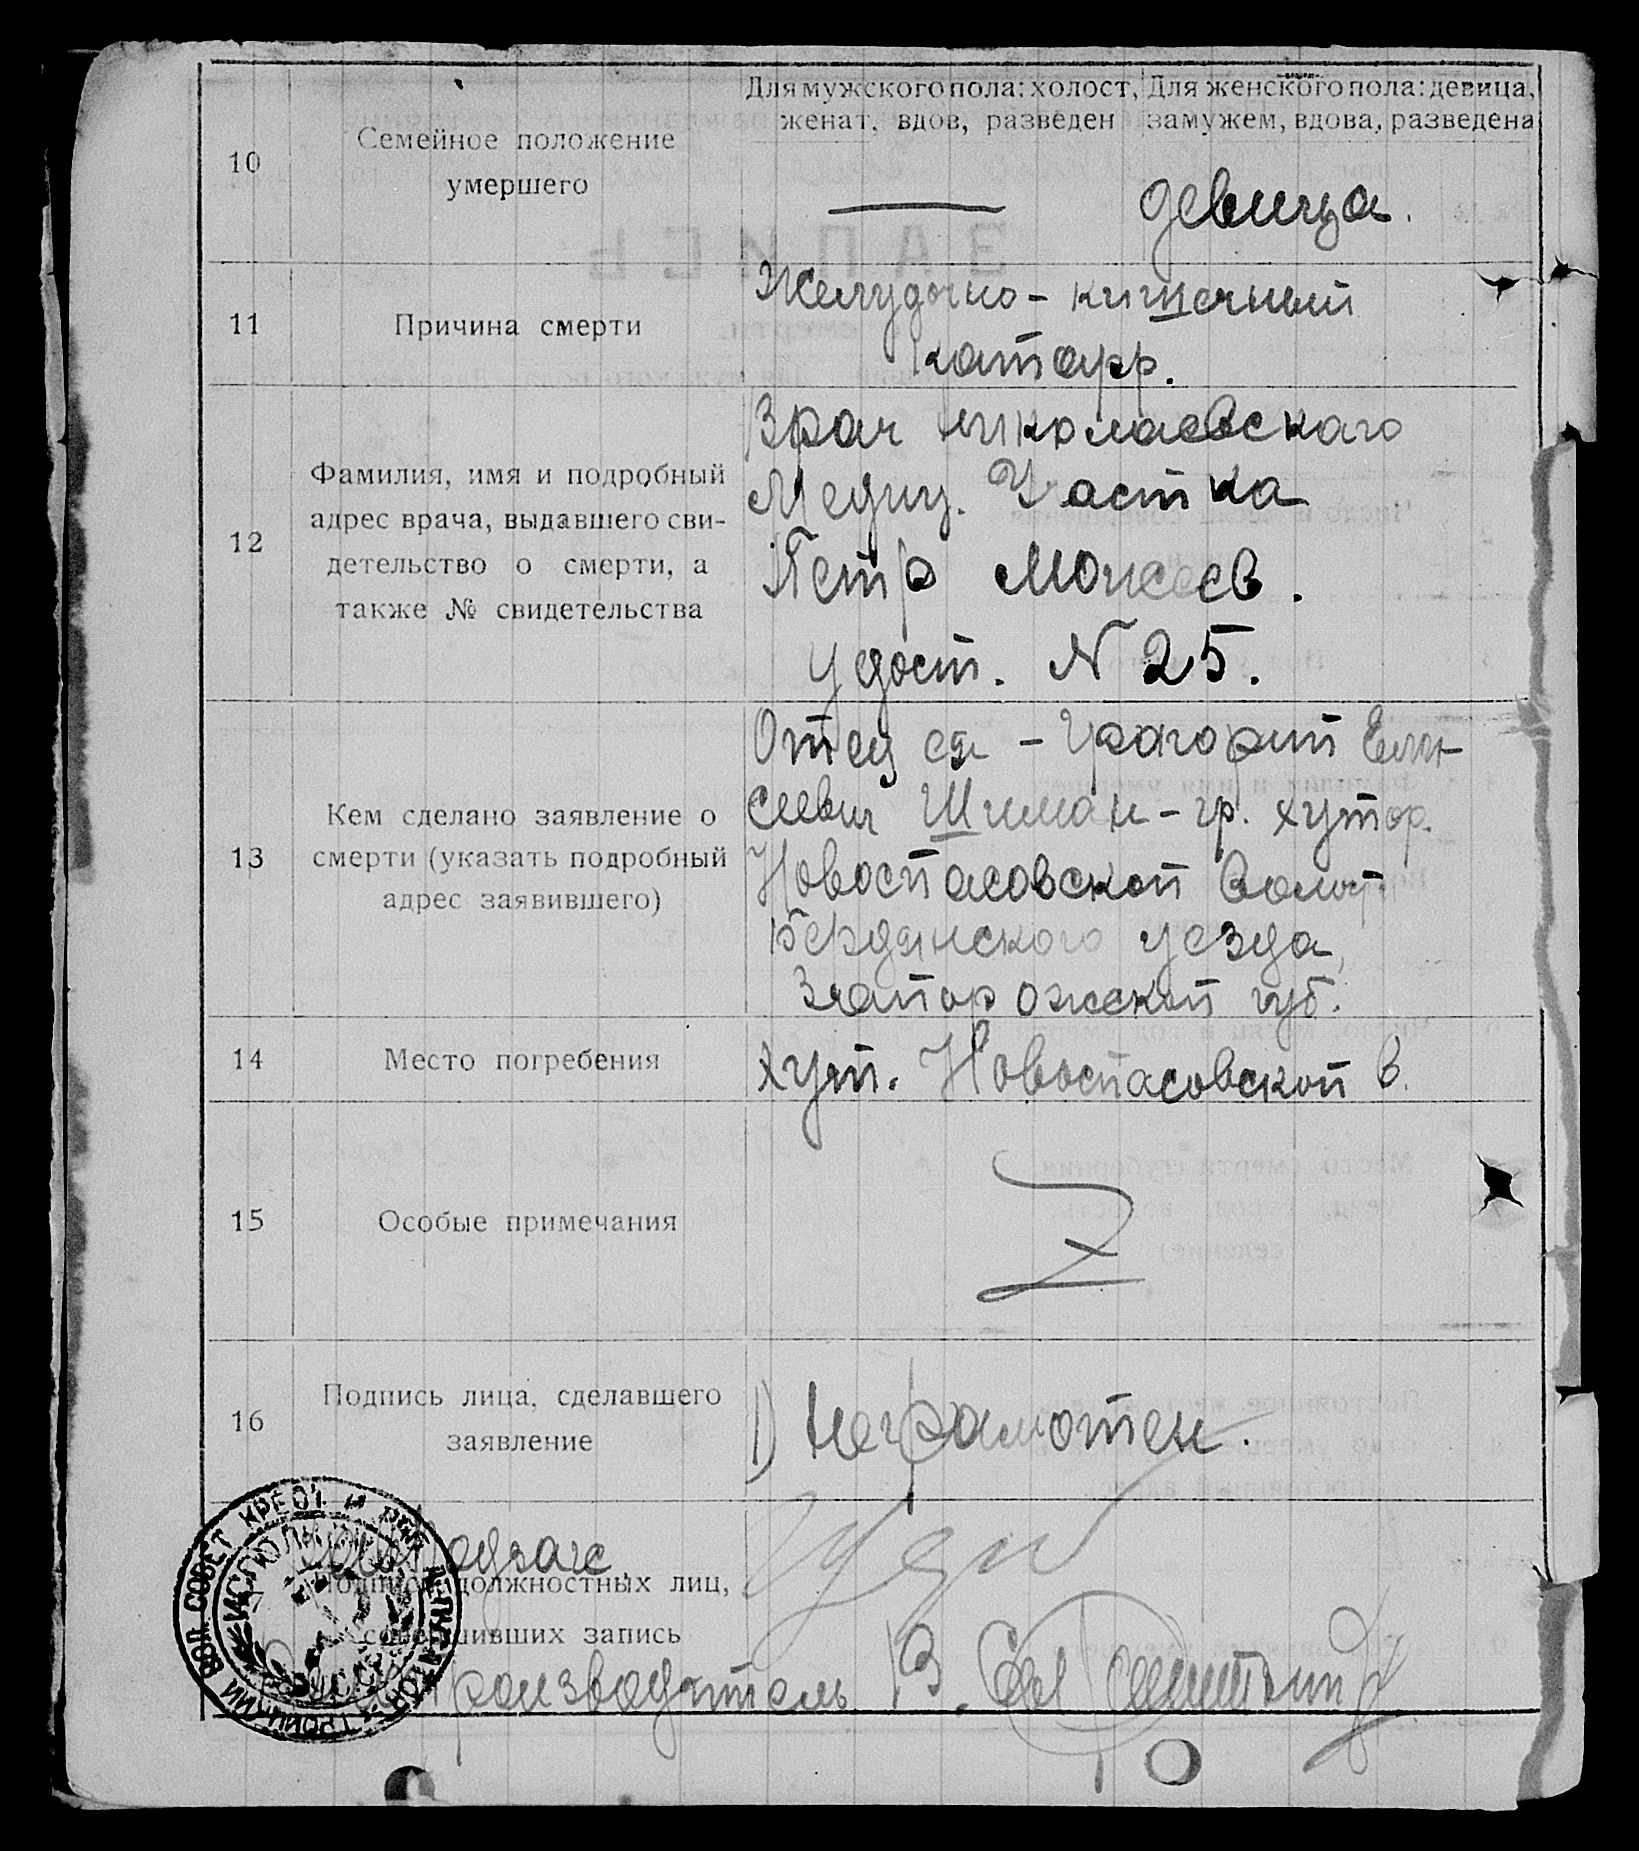 Для мужского пола: холост, женат, вдов, разведен
Для женского пола: девица, замужем, вдова, разведена
10
Семейное положение
умершего
девица.
11
Причина смерти
Желудочно - кишечный
катарр.
12
Фамилия, имя и подробный
адрес врача, выдавшего сви-
детельство о смерти, а
также № свидетельства
Врач Николаевского
Медиц. Участка
Петр Моисеев.
удост. N 25.
13
Кем сделано заявление о
смерти (указать подробный
адрес заявившего)
Отец ея - Григорий Ели-
сеевич Шиман - гр. хутор.
Новоспасовской Волост.
Бердянского уезда,
Запорожской губ.
14
Место погребения
хут. Новоспасовской в.
15
Особые примечания
Z
16
Подпись лица, сделавшего
заявление
1) неграмотен.
Подписи должностных лиц,
совершивших запись
производитель В.
ВОЛ. СОВЕТ КРЕСТ. И РАБ. ДЕПУТАТОВ
ИСПОЛКОМ